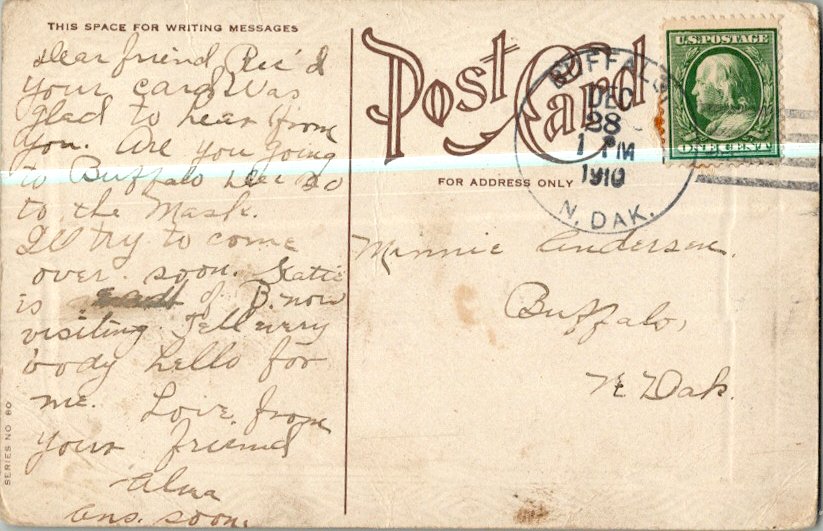 THIS SPACE FOR WRITING MESSAGES
Dear friend Rec'd
your card Was
glad to hear from
you. Are you going
to Buffalo Dec 30
to the Mask.
Ill try to come
over soon. Katie
is of B. now
visiting. Tell every
body hello for
me. Love from
your friend
Alma
Ans. soon.
SERIES NO 60
Post Card
FOR ADDRESS ONLY
BUFFALO
DEC
28
1 PM
1910
N. DAK.
U.S. POSTAGE
ONE CENT
Minnie Anderson.
Buffalo,
N Dak.